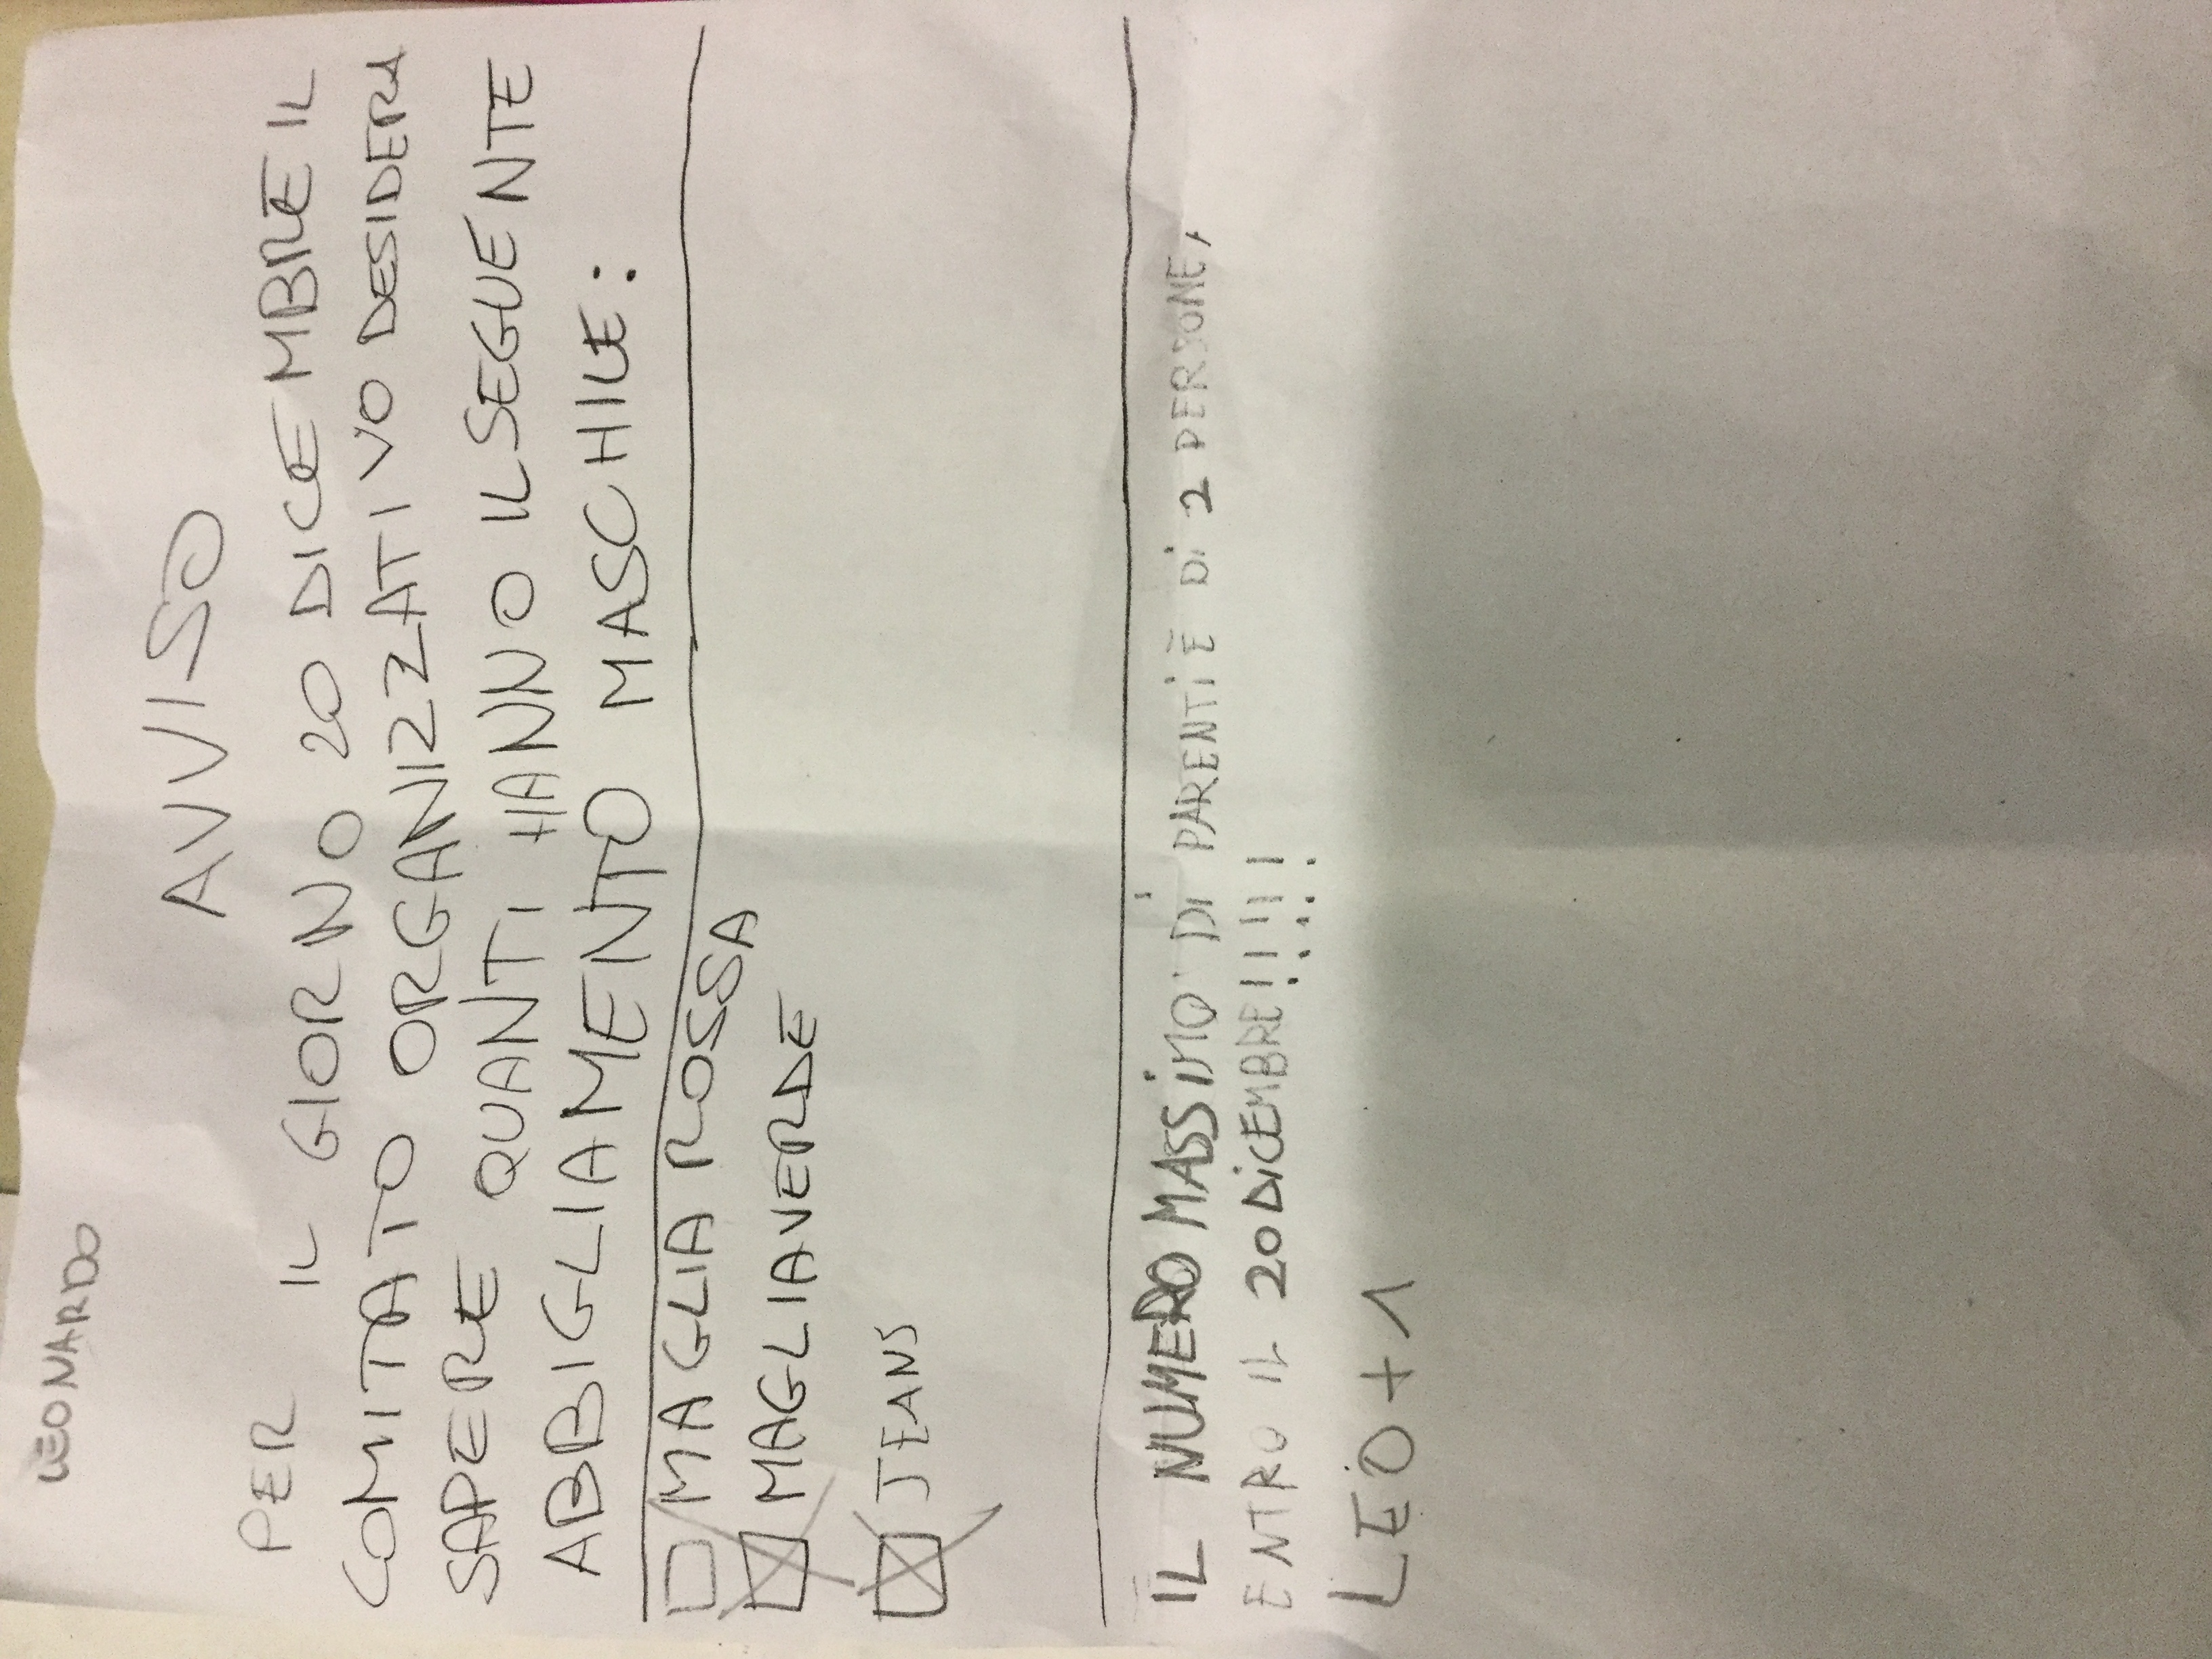 LEONARDO
AVVISO
PER IL GIORNO 20 DICEMBRE IL
COMITATO ORGANIZZATIVO DESIDERA
SAPERE QUANTI HANNO IL SEGUENTE
ABBIGLIAMENTO MASCHILE:
MAGLIA ROSSA
MAGLIA VERDE
JEANS
IL NUMERO MASSIMO DI PARENTI È DI 2 PERSONE,
ENTRO IL 20 DICEMBRE!!!!!!
LEO + 1